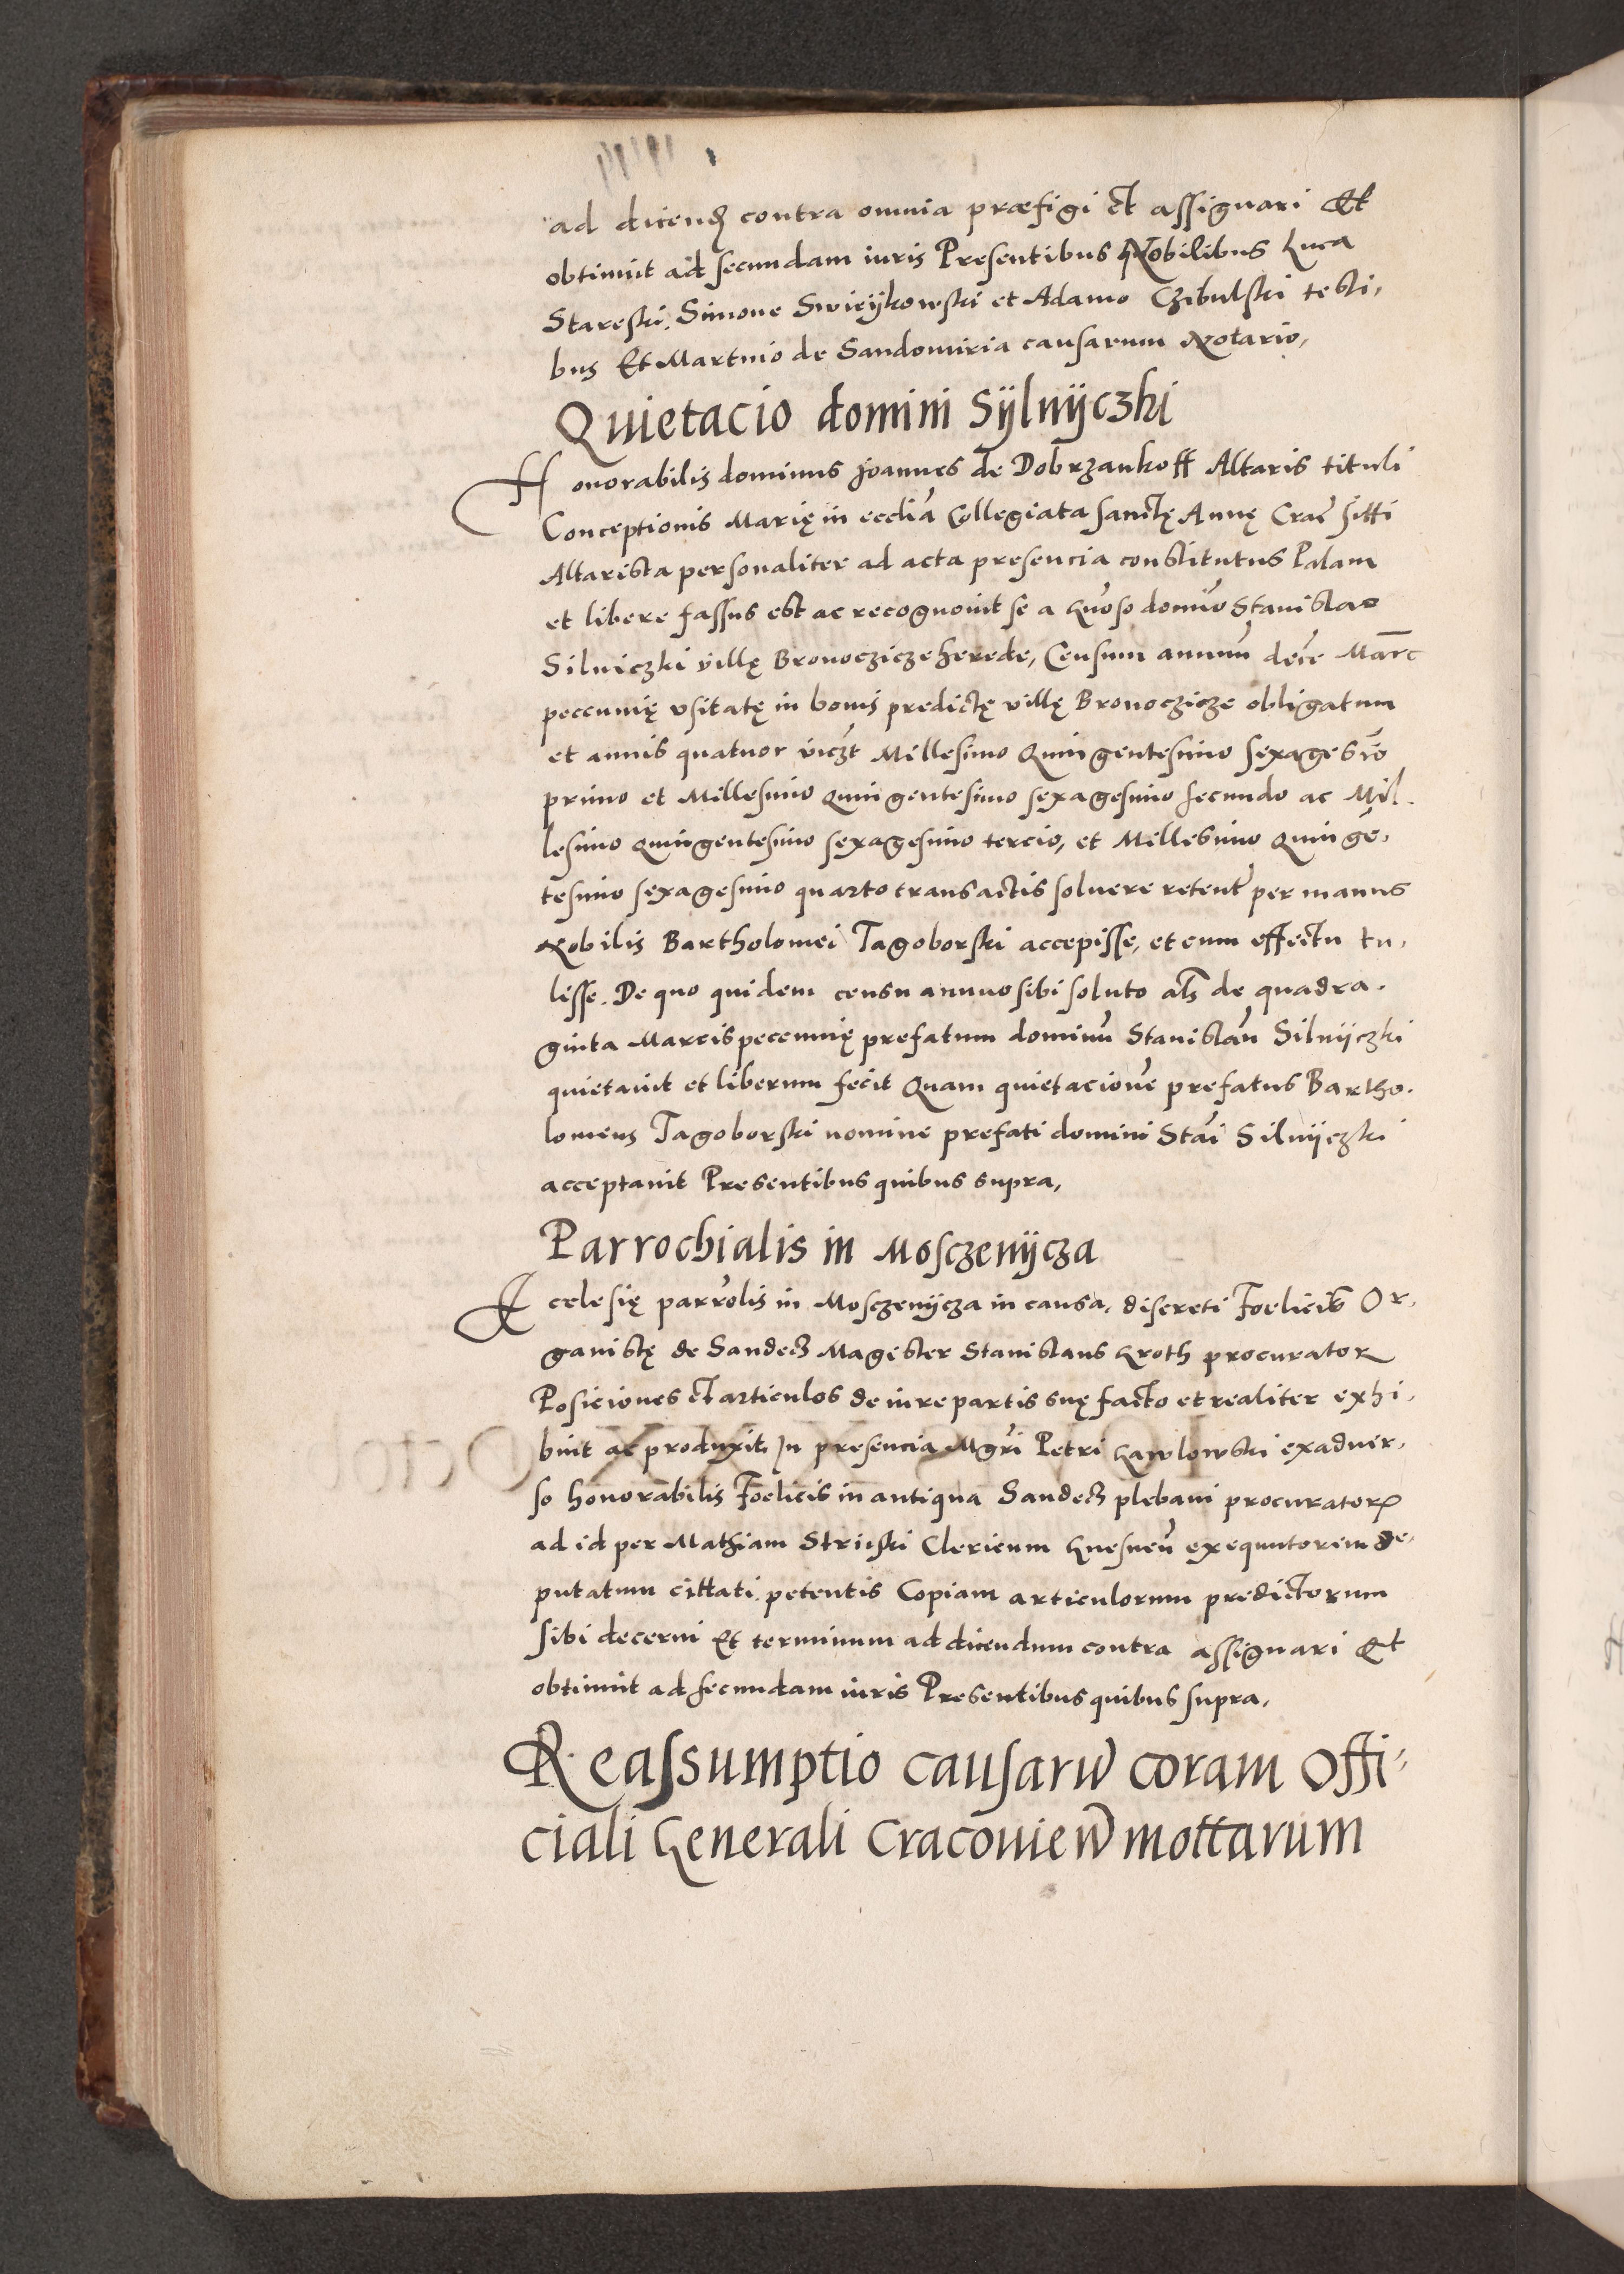 ad dicend contra omnia præfigi et assignari Et
obtinuit ad secundam iuris Presentibus Nobilibus Luca
Stareski, Simone Swieykowski et Adamo Czibulski testi,
bus Et Martino de Sandomiria causarum Notario,
Quietacio domini Sÿlnÿczki
Honorabilis dominus Joannes de Dobrzankoff Altaris tituli
Conceptionis Marię in ecclia Collegiata sanctę Annę Crac sitti
Altarista personaliter ad acta presencia constitutus Palam
et libere fassus est ac recognouit se a gnoso domino Stanislao
Silniczki villę Bronoczicze herede, Censum annuu dece Marc
peccunię vsitatę in bonis predictę villę Bronoczicze obligatum
et annis quatuor viczt Millesimo Quingentesimo sexagesio
primo et Millesimo quingentesimo sexagesimo secundo ac Mil.
lesimo quingentesimo sexagesimo tercio, et Millesimo Quinge,
tesimo sexagesimo quarto transactis soluere retent per manus
Nobilis Bartholomei Tagoborski accepisse, et cum effectu tu,
lisse. De quo quidem censu annuo sibi soluto als de quadra.
ginta Marcis peccunię prefatum dominu Stanislau Silnÿczki
quietauit et liberum fecit Quam quietacione prefatus Bartho.
lomeus Tagoborski nomine prefati domini Stai Silnÿczki
acceptauit Presentibus quibus supra,
Parrochialis in Mosczenÿcza
Ecclesię parrolis in Mosczenÿcza in causa, discreti Foelicis Or,
ganistę de Sandecz Magister Stanislaus Groth procurator
Posiciones et articulos de iure partis suę facto et realiter exhi,
buit ac produxit, In presencia Mgri Petri Gawlowski exaduer,
so honorabilis Foelicis in antiqua Sandecz plebani procuratoris
ad id per Mathiam Strioski Clericum Gnesnen exequutorem de,
putatum cittati, petentis Copiam articulorum predictorum
sibi decerni Et terminum ad dicendum contra assignari Et
obtinuit ad secundam iuris Presentibus quibus supra,
Reassumptio causaru coram Offi,
ciali Generali Cracouien mottarum